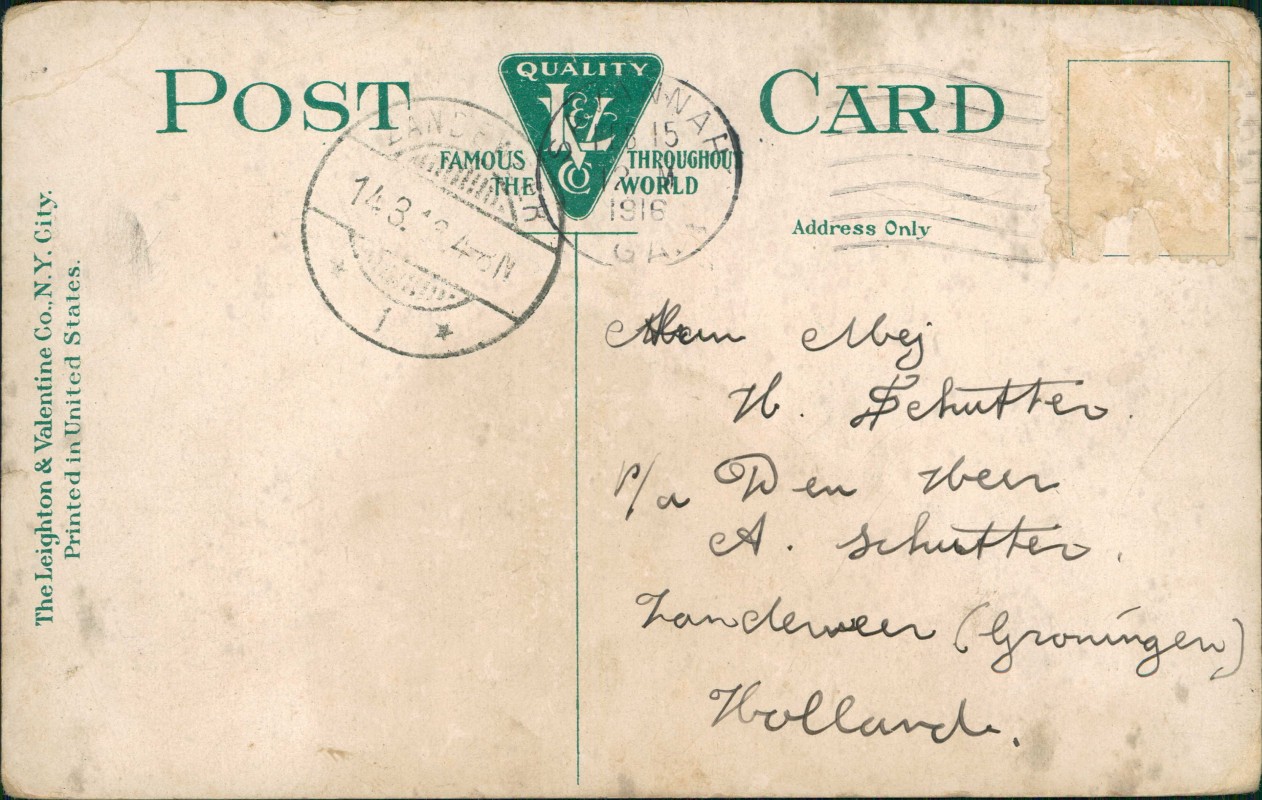 POST CARD
QUALITY
L&V Co
FAMOUS THROUGHOUT
THE WORLD
SAVANNAH
15
1916
GA.
14.3.
1
Address Only
The Leighton & Valentine Co., N.Y. City.
Printed in United States.
Mej
H. Schutter.
p/a Den Heer
A. Schutter.
Zandeweer (Groningen)
Holland.